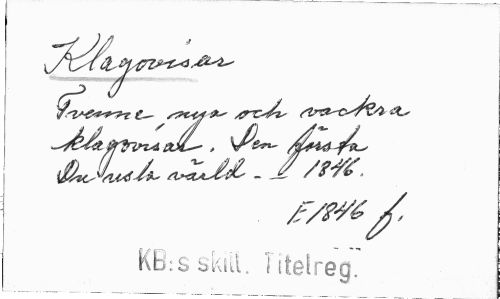 Klagovisar
Tvenne nya och vackra
klagovisar. Den första
Du usla värld - - 1846.
E 1846 f.
KB:s skill. Titelreg.